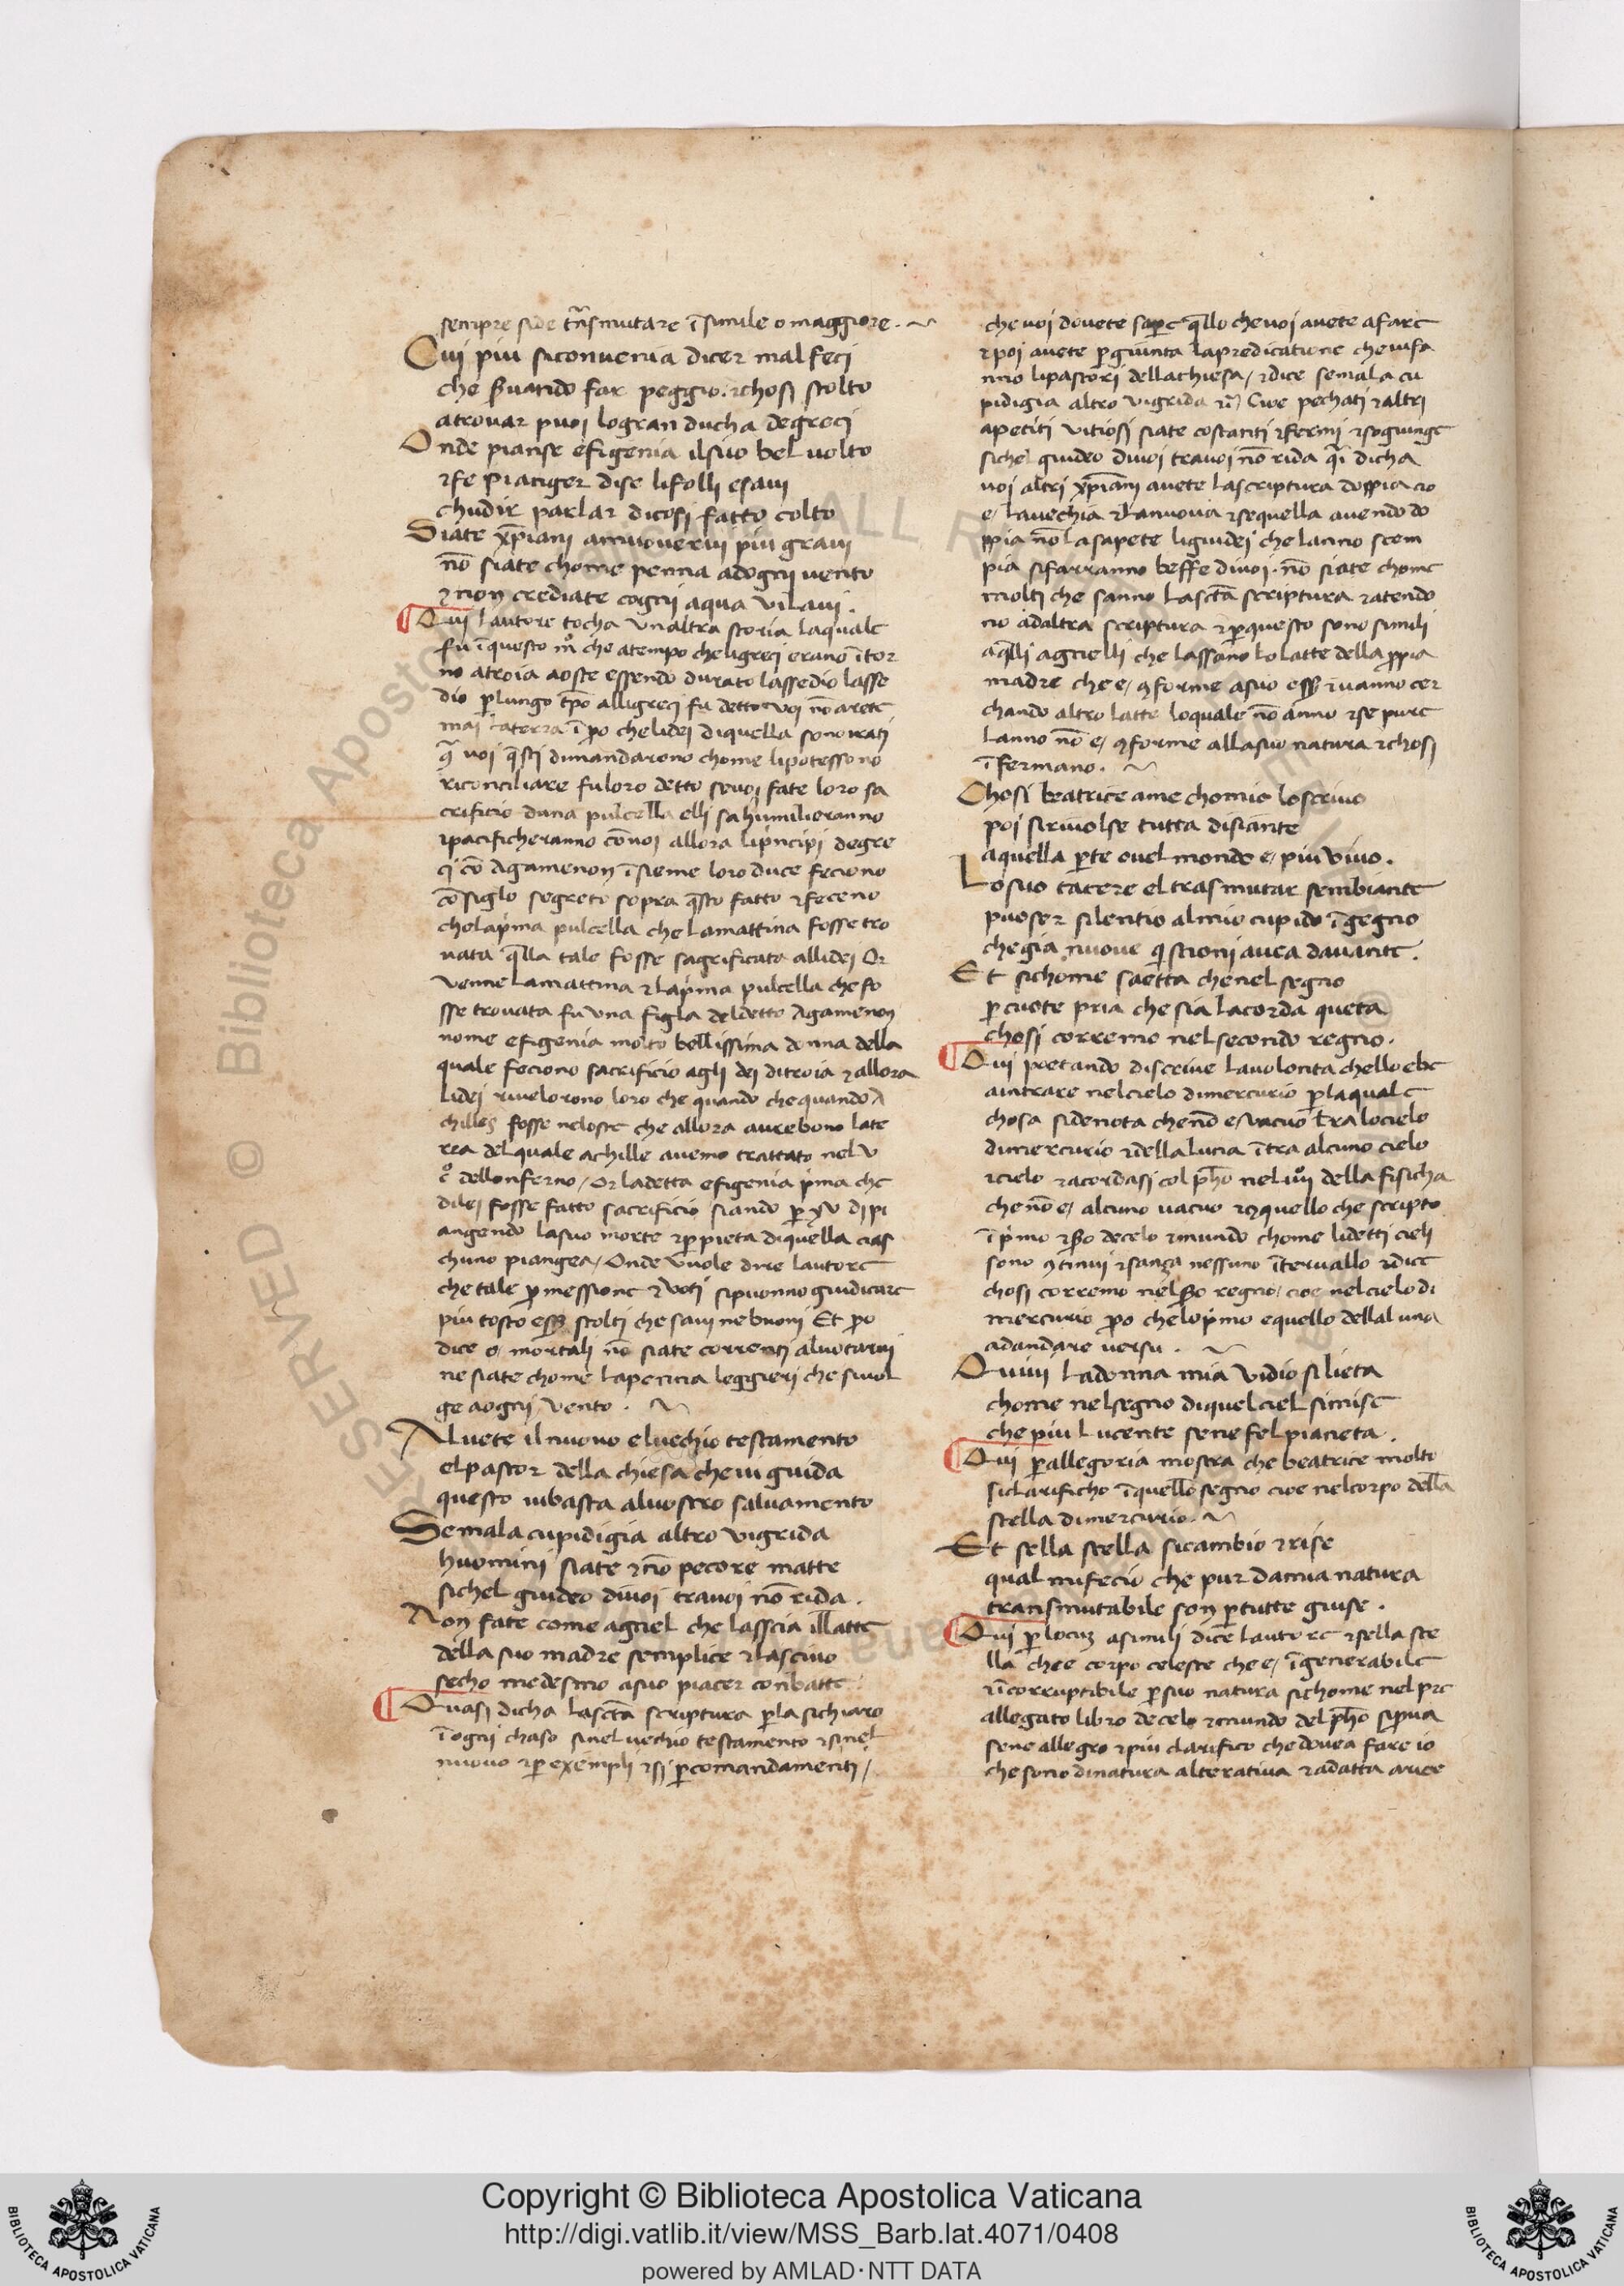 sempre side tr̄asmutare ī simile o maggiore.
Cui piu siconvenia dicer mal feci
che s̄vando far peggio. ⁊chosi stolto
atrovar puoi logran ducha degreci
Onde pianse efigenia ilsuo bel volto
⁊fe pianger dise lifolli esavi
chudir parlar dicosi fatto colto
Siate xp̄iani amuovervi piu gravi
nō siate chome penna adogni vento
⁊non crediate cogni aqua vi lavi.
Qui lautore tocha unaltra storia laquale
fu ī questo mº che atempo cheligreci erano ītor
no atroia aoste essendo durato lassedio lasse
dio p̱lungo tp̄o alligreci fu detto voi nō arete
mai laterra ī p̱o chelidei diquella sono irati
9tra voi q̄sti dimandarono chome lipotessono
riconciliare fuloro detto sevoi fate loro sa
crificio duna pulcella elli sahumilieranno
⁊pacificheranno cōvoi allora lip̄ncipi degre
ci cō Agamenon īsieme loro duce feciono
cōsiglo segreto sopra q̄sto fatto ⁊feceno
chelap̄ma pulcella che lamattina fosse tro
vata q̄lla tale fosse sagrificata allidei Or
venne lamattina ⁊lap̄ma pulcella che fo
sse trovata fu una figla deldetto Agamenon
nome efigenia molto bellissima donna della
quale feciono sacrificio agli dei ditroia ⁊allora
lidei rivelorono loro che quando chequando A
chilles fosse neloste che allora avrebono late
rra del quale achille avemo trattato nel v
cº dellonferno, Or ladetta efigenia p̄ma che
dilei fosse fatto sacrificio stando p̱ xv di pi
angendo lasuo morte ⁊p̱pieta diquella cias
chuno piangea, Onde vuole dire lautore
che tale p̱messione ⁊ voti sipuonno giudicare
piu tosto ess̄e stolti che savi nebuoni Et p̱o
dice o mortali nō siate correnti alvotarvi
ne siate chome lapenna leggieri che sivol
ge aogni vento.
Avete ilnuovo elvechio testamento
elpastor della chiesa chevi guida
questo vibasta alvostro salvamento
Semala cupidigia altro vigrida
huomini siate ⁊nō pecore matte
sichel giudeo divoi travoi nō rida.
Non fate come agnel che lasscia illatte
della suo madre semplice ⁊lascivo
secho medesmo asuo piacer conbatte
Quasi dicha lasctā scriptura p̱la sichiaro
ī ogni chaso sinel vechio testamento ⁊sinel
nuovo ⁊p̱ exempli ⁊si p̱comandamenti,
che voi dovete sap̱e q̄llo chevoi avete afare
⁊poi avete p̱giunta lapredicatione chevifa
nno lipastori dellachiesa, ⁊dice semala cu
pidigia altro vigrida ⁊c̄ Cioe pechati ⁊altri
apetiti vitiosi siate costanti ⁊fermi ⁊sogiunge
sichel giudeo divoi travoi nō rida q̄i dicha
voi altri xp̄iani avete lascriptura doppia cio
e, lavechia ⁊lanuova ⁊sequella avendo do
ppia nō lasapete ligiudei che lanno scem
pia sifarranno beffe divoi. nō siate chome
molti che sanno lasctā scriptura ⁊atendo
no adaltra scriptura ⁊p̱questo sono simili
aq̄lli agnelli che lassano lo latte della p̱pia
madre che e, 9forme asuo ess̄e ⁊vanno cer
chando altro latte loquale nō anno ⁊se pure
lanno nō e, 9forme allasuo natura ⁊chosi
īfermano.
Chosi beatrice ame chomio loscrivo
poi sirivolse tutta disiante
aquella p̱te ovel mondo e, piu vivo.
Losuo tacere el trasmutar sembiante
puoser silentio almio cupido īgegno
chegia nuove q̄stioni avea davante.
Et sichome saetta chenel segno
p̱cuote pria che sia lacorda queta
chosi corremo nel secondo regno.
Qui poetando discrive lavolonta chello ebe
aintrare nelcielo dimercurio p̱laquale
chosa sidenota chenō e, vacuo tra locielo
dimercurio ⁊della luna ītra alcuno cielo
⁊cielo ⁊acordasi col ph̄o nel iiijº della fisicha
che nō e, alcuno vacuo ⁊9quello che scripto
ī p̄mo ⁊sº decelo ⁊mundo chome lidetti cieli
sono 9tinui ⁊sanza nessuno ītervallo ⁊dice
chosi corremo nelsº regno, cioe nelcielo di
mercurio p̱o chelop̄mo equello dellaluna
adandare versu.
Quivi ladonna mia vidio silieta
chome nelsegno diquel ciel simise
che piu lucente sene fel pianeta.
Qui p̱allegoria mostra che beatrice molto
siclarificho ī quello segno cioe nelcorpo della
stella dimercurio.
Et sella stella sicambio ⁊rise
qual mifecio che pur damia natura
transmutabile son p̱tutte guise.
Qui p̱ locuz asimili dice lautore ⁊sella ste
lla chee corpo celeste che e, īgenerabile
⁊īcorruptibile p̱suo natura sichome nel pre
allegato libro decelo ⁊mundo del ph̄o si p̱va
sene allegro ⁊piu clarifico chedovea fare io
che sono dinatura alterativa ⁊adatta arice
Copyright © Biblioteca Apostolica Vaticana
http://digi.vatlib.it/view/MSS_Barb.lat.4071/0408
powered by AMLAD·NTT DATA
BIBLIOTECA APOSTOLICA VATICANA
BIBLIOTECA APOSTOLICA VATICANA